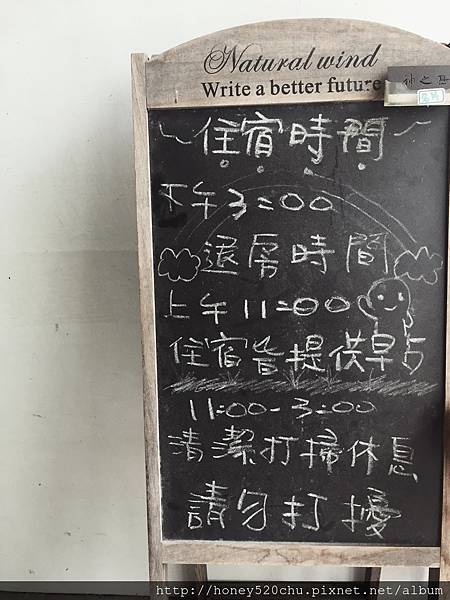 Natural wind
Write a better future
住宿時間
下午3:00
退房時間
上午11:00
住宿皆提供早点
11:00-3:00
清潔打掃休息
請勿打擾
http://honey520chu.pixnet.net/album